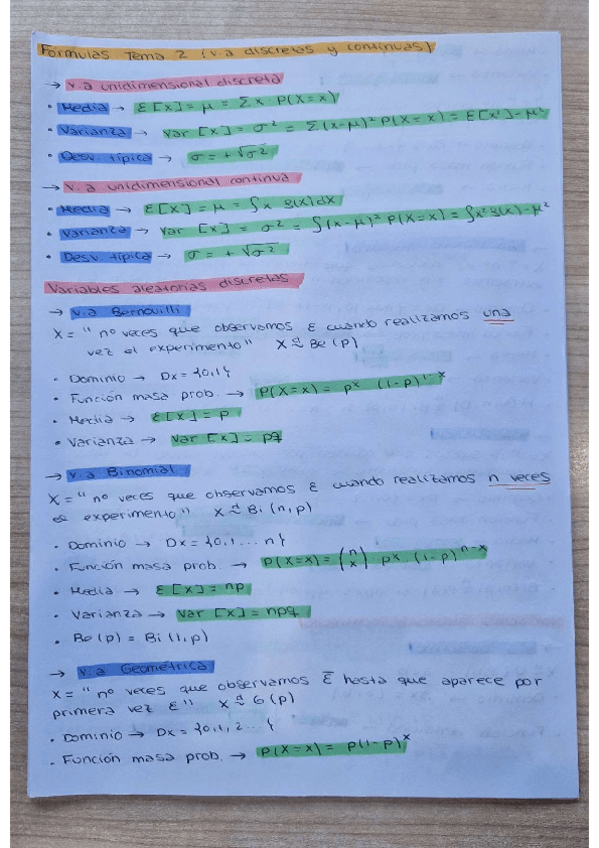 Formulas Tema 2 (v.a discretas y continuas)
→ v.a unidimensional discreta
• Media → E[X] = μ = Σx · P(X=x)
• Varianza → Var [X] = σ² = Σ(x-μ)² P(X=x) = E[X²] - μ²
• Desv. típica → σ = +√σ²
→ v.a unidimensional continua
• Media → E[X] = μ = ∫x f(x)dx
• Varianza → Var [X] = σ² = ∫(x-μ)² P(X=x) = ∫x² f(x) - μ²
• Desv. típica → σ = +√σ²
Variables aleatorias discretas
→ v.a Bernouilli
X = " nº veces que observamos E cuando realizamos una
vez el experimento" X ≈ Be (p)
• Dominio → Dx = {0,1}
• Función masa prob. → P(X=x) = pˣ (1-p)¹⁻ˣ
• Media → E[X] = p
• Varianza → Var [X] = pq
→ v.a Binomial
X = " nº veces que observamos E cuando realizamos n veces
el experimento" X ≈ Bi (n,p)
• Dominio → Dx = {0,1 ... n}
• Función masa prob. → P(X=x) = (n x) pˣ · (1-p)ⁿ⁻ˣ
• Media → E[X] = np
• Varianza → Var [X] = npq
• Be (p) = Bi (1,p)
→ v.a Geométrica
X = " nº veces que observamos Ē hasta que aparece por
primera vez E" X ≈ G (p)
• Dominio → Dx = {0,1,2... }
• Función masa prob. → P(X=x) = p(1-p)ˣ